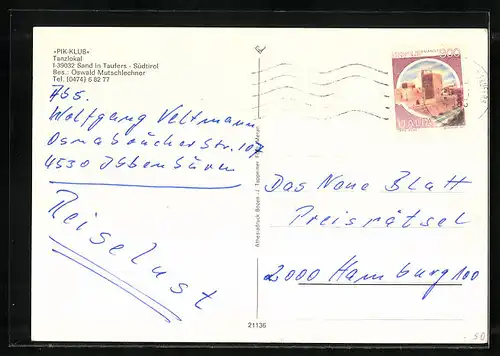 «PIK-KLUB»
Tanzlokal
I-39032 Sand in Taufers - Südtirol
Bes.: Oswald Mutschlechner
Tel. (0474) 6 82 77
Abs.
Wolfgang Veltmann
Osnabrücker Str. 107
4530 Ibbenbüren
Reiselust
Athesiadruck Bozen - J. Tappeiner Foto Meran
21136
ITALIA
Das Neue Blatt
Preisrätsel
2000 Hamburg 100